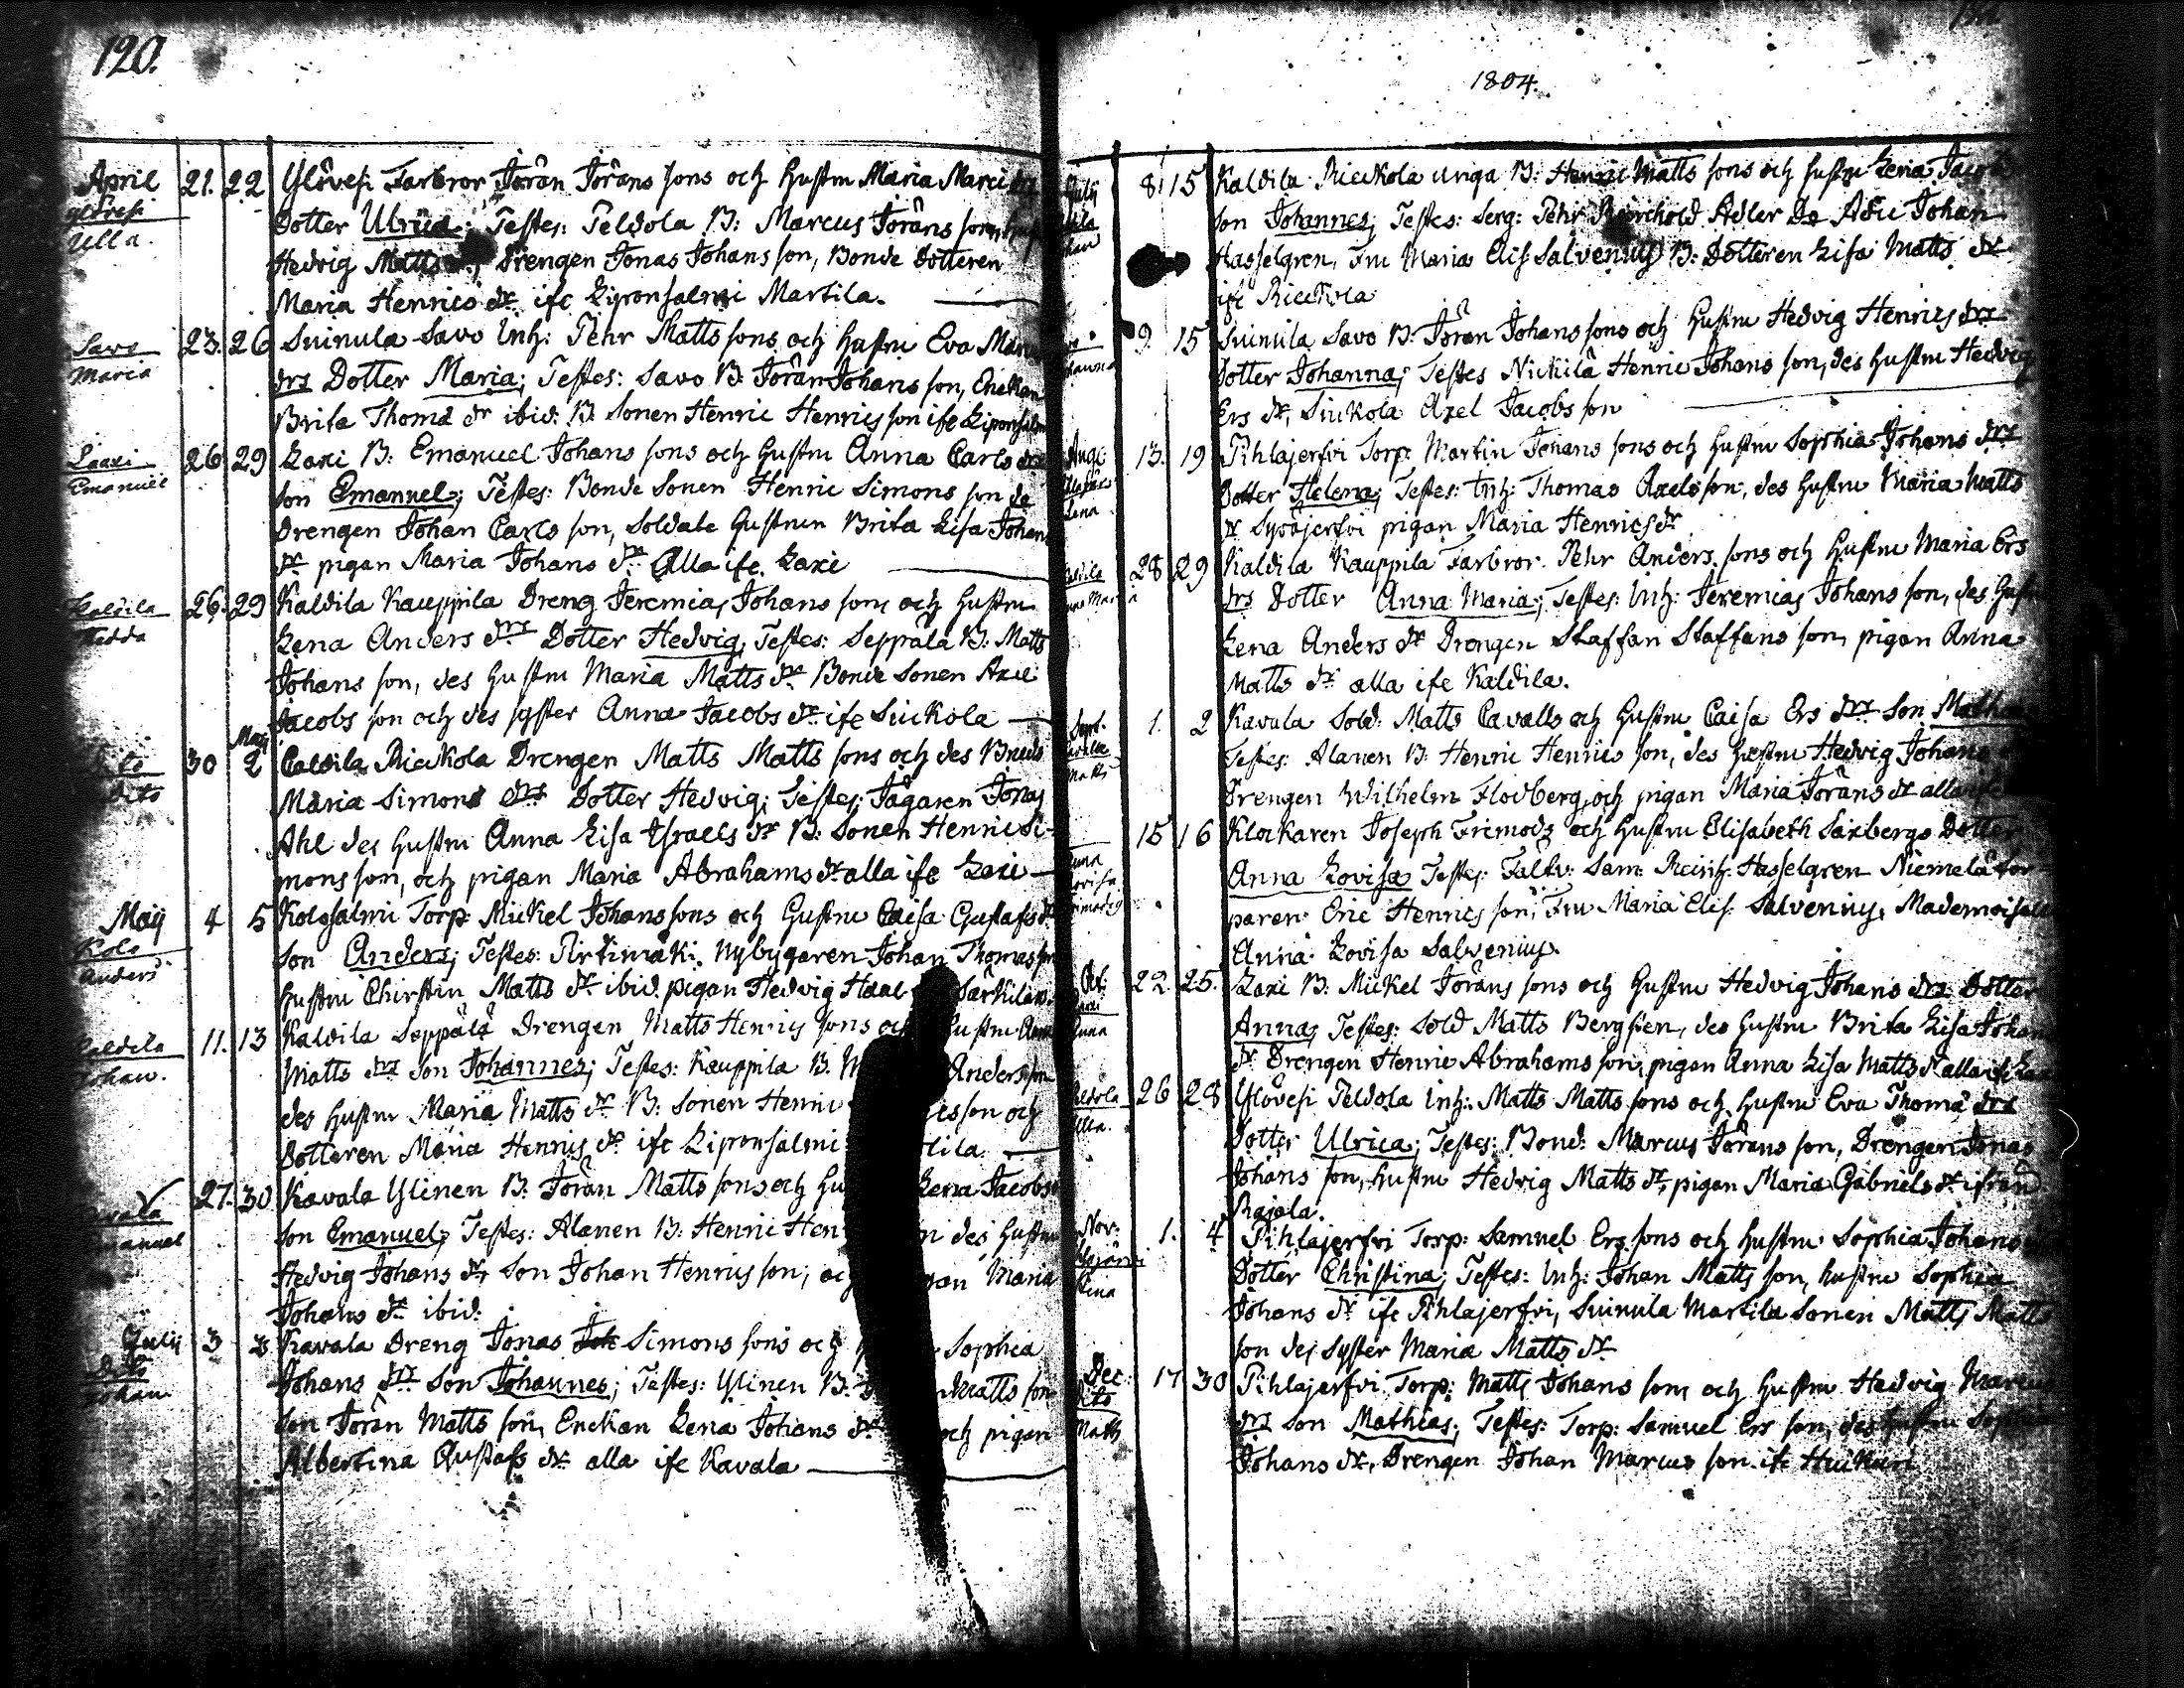 120.
April 21. 22 Ylövesi Farbror Jöran Jörans sons och hustru Maria Marci drs
Ylövesi
Ulla.
Dotter Ulrica; Testes: Peldola B: Marcus Jörans son, hust
Hedvig Matts dr, Drengen Jonas Johans son, Bonde Dotteren
Maria Henrics dr ifr Liponsalmi Martila.
Savo 23. 26 Suinula Savo Inh: Pehr Matts sons och hustru Eva
Maria
drs Dotter Maria; Testes: Savo B. Jöran Johans son, Enckan
Brita Thomæ dr ibid. B. Sonen Henric Henrics son ifr Liponsalm
Laxi 26 29 Laxi B: Emanuel Johans sons och hustru Anna Carls drs
Emanuel
Son Emanuel; Testes: Bonde Sonen Henric Simons son
Drengen Johan Carls son, Soldate hustrun Brita Lisa Johans
dr pigan Maria Johans dr Alla ifr Laxi
Kaldila 26. 29 Kaldila Kauppila Dreng Jeremias Johans sons och hustru
Hedda
Lena Anders drs Dotter Hedvig; Testes: Seppälä B: Matts
Johans son, des hustru Maria Matts dr Bonde Sonen Axel
Jacobs son och des syster Anna Jacobs dr ifr Siukola
Maij
Dito 30 2 Caldila Rieckola Drengen Matts Matts sons och des
dito
Maria Simons drs Dotter Hedvig; Testes: Jägaren Jonas
Ahl des hustru Anna Lisa Israels dr B: Sonen Henric Si-
mons son, och pigan Maria Abrahams dr alla ifr Laxi
Maij 4 5 Kolosalmi Torp: Mickel Johans sons och hustru Caisa Gustafs
Kolo
Anders
Son Anders; Testes: Pirtimäki Nybygaren Johan Thomas son
hustru Chirstin Matts dr ibid. pigan Hedvig
Kaldila 11. 13 Kaldila Seppälä Drengen Matts Henrics sons och hustru
Johan.
Matts drs Son Johannes; Testes: Kauppila B. Anders son
des hustru Maria Matts dr B: Sonen Henric son och
Dotteren Maria Henrics dr ifr Liponsalmi
Kavala 27. 30 Kavala Ylinen B: Jöran Matts sons och Lena Jacobs
Emanuel
Son Emanuel; Testes: Alanen B: Henric des hustru
Hedvig Johans dr, Son Johan Henrics son, Maria
Johans dr ibid:
Julij 3 3 Kavala Dreng Jonas Simons sons och Sophia
Dito
Johan
Johans drs Son Johannes; Testes: Ylinen B: Matts son
Son Jöran Matts son, Enckan Lena Johans dr och pigan
Albertina Gustafs dr alla ifr Kavala
1804.
Julij 8. 15 Kaldila Rieckola unga B: Henric Matts sons och hustru Lena
Son Johannes; Testes: Serg: Pehr Adler Johan
Hasselgren, Fru Maria Elis Salvenius B: Dotteren Lisa Matts dr
ifr Rieckola
9 15 Suinula Savo B: Jöran Johans sons och hustru Hedvig Henrics drs
Dotter Johanna; Testes Nickilä Henric Johans son, des hustru Hedvig
Ers dr, Siukola Axel Jacobs son
Aug: 13. 19 Pihlajerfvi Torp: Martin Johans sons och hustru Sophia Johans drs
Lena
Dotter Helena; Testes: Inh: Thomas Axels son, des hustru Maria Matts
dr Syväjerfvi pigan Maria Henrics dr
Kaldila 28 29 Kaldila Kauppila Farbror Pehr Anders sons och hustru Maria Ers
drs Dotter Anna Maria; Testes: Inh: Jeremias Johans son, des
Lena Anders dr Drengen Staffan Staffans son, pigan Anna
Matts dr alla ifr Kaldila.
Sept. 1. 2 Kavala Sold: Matts Cavalls och hustru Caisa Ers drs Son
Matts
Testes: Alanen B: Henric Henrics son, des hustru Hedvig Johans
Drengen Wilhelm Flodberg, och pigan Maria Jörans dr
15 16 Klockaren Joseph Frimods och hustru Elisabeth Saxbergs Dotter
Anna
Lovisa
Anna Lovisa Testes: Fältv: Sam: Reinh: Hasselgren Niemelä tor-
paren Eric Henrics son, Fru Maria Elis: Salvenius, Mademoiselle
Anna Lovisa Salvenius.
Oct: 22. 25. Laxi B: Mickel Jörans sons och hustru Hedvig Johans drs Dotter
Anna
Anna; Testes: Sold Matts Bergsten, des hustru Brita Lisa Johans
dr Drengen Henric Abrahams son, pigan Anna Lisa Matts dr alla ifr Laxi
Peldola 26 28 Ylövesi Peldola Inh: Matts Matts sons och hustru Eva Thomæ drs
Ulla.
Dotter Ulrica; Testes: Bond: Marcus Jörans son, Drengen Jonas
Johans son, hustru Hedvig Matts dr, pigan Maria Gabriels dr ifrån
Rajala.
Nov. 1. 4 Pihlajerfvi Torp: Samuel Ers sons och hustru Sophia Johans
Stina
Dotter Christina; Testes: Inh: Johan Matts son, hustru Sophia
Johans dr ifr Pihlajerfvi, Suinula Martila Sonen Matts Matts
son des Syster Maria Matts dr
Dec: 17 30 Pihlajerfvi Torp: Matts Johans sons och hustru Hedvig Marcus
Dito
Matts
drs Son Mathias; Testes: Torp: Samuel Ers son, des hustru Sophia
Johans dr, Drengen Johan Marcus son ifr